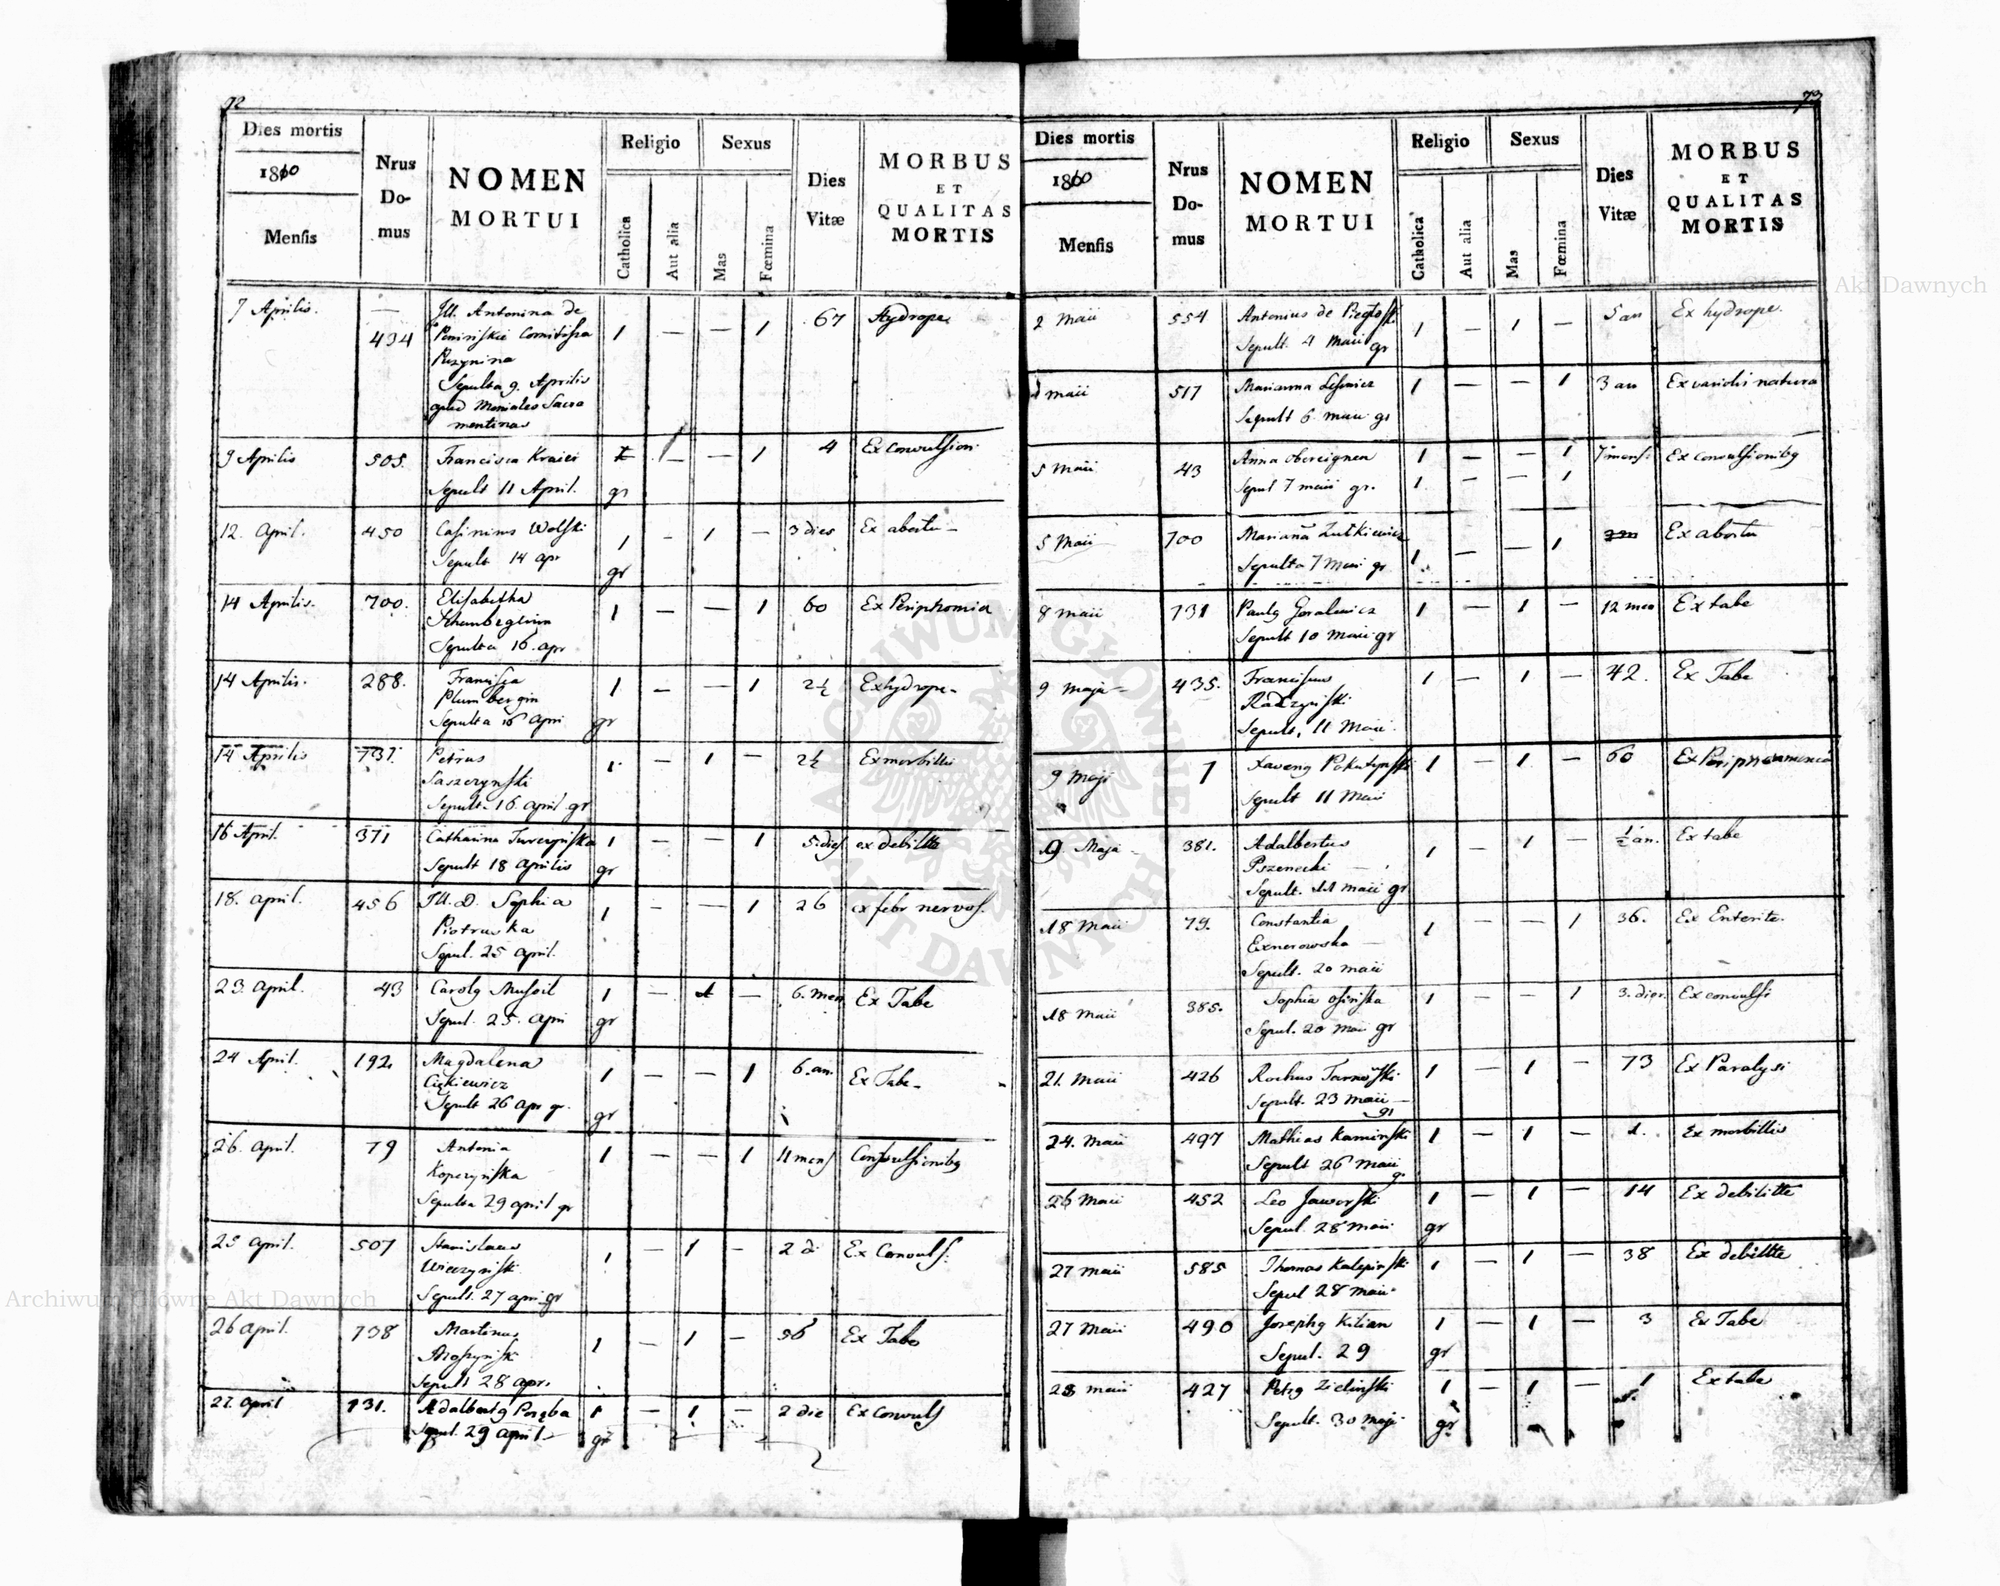 72
Dies mortis
1860
Mensis
Nrus Do-mus
NOMEN MORTUI
Religio
Catholica
Aut alia
Sexus
Mas
Fœmina
Dies Vitæ
MORBUS ET QUALITAS MORTIS
7 Aprilis. — 434 Ill. Antonina de 1 — — 1 67 Hydrope
Comitissa
Sepulta 9. Aprilis
apud Moniales Sacra
mentinas
9 Aprilis 505. Francisca Kraici 1 — — 1 4 Ex convulsion
Sepult 11 April. gr
12. April. 450 Casimirus Wolski 1 — 1 — 3 dies Ex abortu —
Sepult 14 apr gr
14 Aprilis. 700. Elisabetha 1 — — 1 60
Sepulta 16. apr
14 Aprilis. 288. Francisca 1 — — 1 2½ Ex hydrope.
Plumbergin
Sepulta 16 Apri gr
14 Aprilis 731. Petrus 1. — 1 — 2½ Ex morbillis
Saszczynski
Sepult. 16 april gr
16 April. 371 Catharina 1 — — 1 5. dies ex debilitte
Sepult 18 Aprilis gr
18. april. 456 Ill. D. Sophia 1 — — 1 26 ex febr nervos.
Piotruska
Sepul. 25 april.
23. april. 43 Carolg Musoil 1 — 1 — 6. men Ex Tabe
Sepul. 25. Apri gr
24 April. 192 Magdalena 1 — — 1 6. an. Ex Tabe
Sepult 26 apr gr. gr
26. april. 79 Antonia 1 — — 1 11 mens Convulsionibg
Kopczynska
Sepulta 29 april gr
25 april. 507 Stanislaus 1 — 1 — 2 d. Ex Convuls.
Wierzynski
Sepult. 27 apri gr
26 april. 738 Martinus 1 — 1 — 56 Ex Tabe
Sepult 28 apr.
27. april 731. Adalbertg Poręba 1 — 1 — 2 die Ex Convuls
Sepul. 29 april — gr
73
Dies mortis
1860
Mensis
Nrus Do-mus
NOMEN MORTUI
Religio
Catholica
Aut alia
Sexus
Mas
Fœmina
Dies Vitæ
MORBUS ET QUALITAS MORTIS
2 Maii 554 Antonius de 1 — 1 — 5 an Ex hydrope.
Sepult. 4 Maii gr
4 maii 517 Marianna 1 — — 1 3 an Ex variolis natura
Sepult 6 maii gr
5 Maii 43 Anna 1 — — 1 7 mens: Ex convulsionibg
Sepul 7 maii gr. 1. — — 1
5 Maii 700 Mariana Lutkiewicz 1 — — 1 Ex abortu
Sepulta 7 Maii gr
8 maii 731 Paulg Goralewicz 1 — 1 — 12 men Ex tabe
Sepult 10 Maii gr
9 Maja — 435. Franciscus 1 — 1 — 42. Ex Tabe
Radzynski
Sepult. 11 Maii.
9 Maji 1 Xaverig 1 — 1 — 60
Sepult 11 Maii
9 Maja — 381. Adalbertus 1 — 1 — ½ an. Ex tabe
Pszenecki —
Sepult. 11 maii gr
18 Maii 79. Constantia 1 — — 1 36. Ex Enterite.
Exnerowska —
Sepult. 20 maii
18 Maii 385. Sophia Osinska 1 — — 1 3. dier. Ex convulsi
Sepul. 20 maii gr
21. Maii 426 Rochus Tarnowski 1 — 1 — 73 Ex Paralysi
Sepult. 23 maii — gr
24. Maii 497 Mathias Kaminski 1 — 1 — 1. Ex morbillis
Sepult 26 maii gr
26 Maii 452 Leo Jaworski 1 — 1 — 14 Ex debilitte
Sepul. 28 maii gr
27 maii 585 Thomas Kalepinski 1 — 1 — 38 Ex debilitte
Sepul 28 maii
27 Maii 490 Josephg Kilian 1 — 1 — 3 Ex Tabe
Sepul. 29 gr
28 maii 427 Petrg Zielinski 1 — 1 — 1 Ex tabe
Sepult. 30 maji gr
Archiwum Główne Akt Dawnych
Archiwum Główne Akt Dawnych
ARCHIWUM GŁÓWNE AKT DAWNYCH